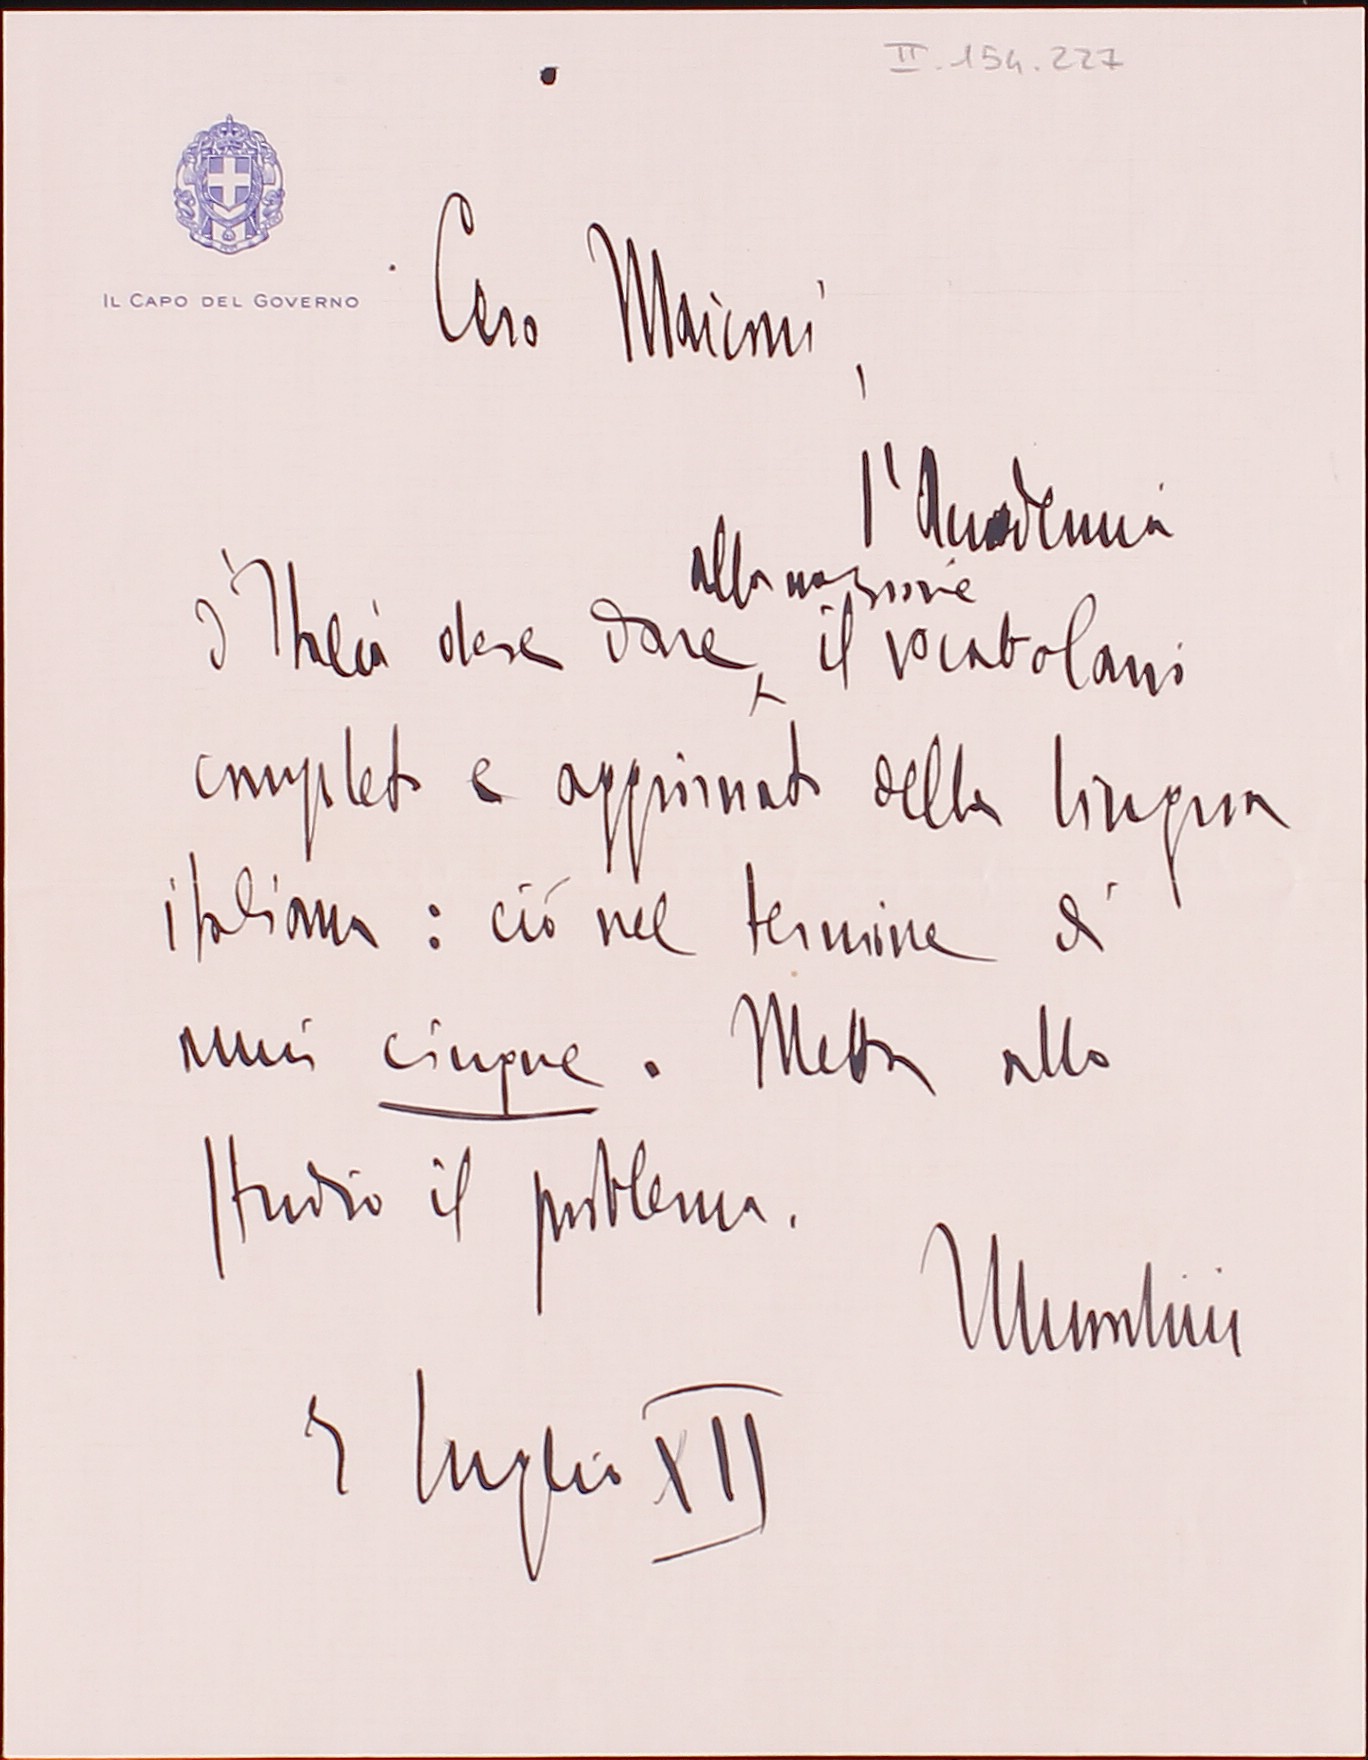 II.154.227
IL CAPO DEL GOVERNO
Caro Marconi,
l'Accademia
d'Italia deve dare alla nazione il vocabolario
completo e aggiornato della lingua
italiana: ciò nel termine di
anni cinque. Metta allo
studio il problema.
Mussolini
Luglio XII